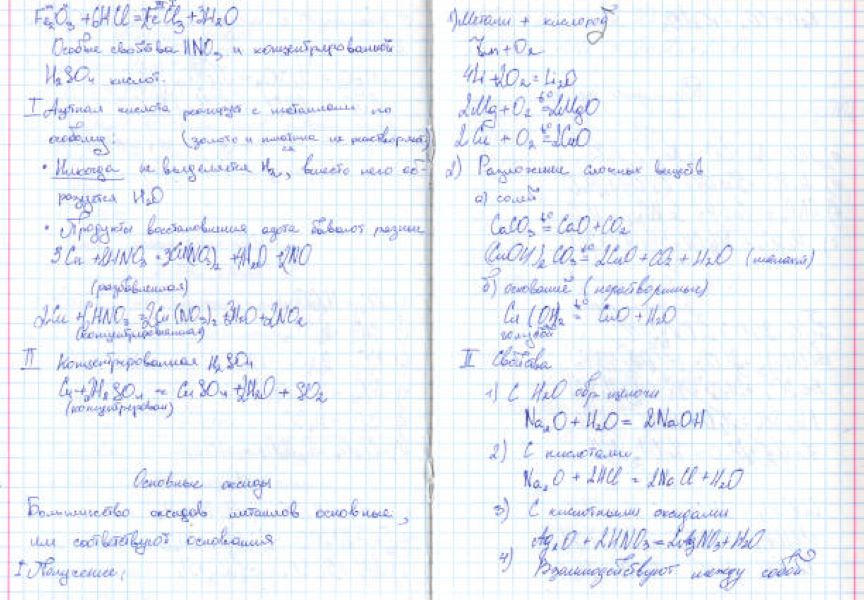 Fe₂O₃ + 6HCl = 2FeCl₃ + 3H₂O
Особые свойства HNO₃ и концентрированной
H₂SO₄ кислот.
I Азотная кислота реагирует с металлами по
особому: (золото и платина не растворяют)
ся
• Никогда не выделяется H₂, вместо него об-
разуется H₂O
• Продукты восстановления азота бывают разные
3Cu + 8HNO₃ = 3Cu(NO₃)₂ + 4H₂O + 2NO
(разбавленная)
HNO₃ = 2Cu(NO₃)₂ + 2H₂O + 2NO₂
(концентрированная)
II Концентрированная H₂SO₄
Cu + 2H₂SO₄ = CuSO₄ + 2H₂O + SO₂
(концентрирован)
Основные оксиды
Большинство оксидов металлов основные,
им соответствуют основания
I Получение:
1) Металл + кислород
+ O₂
4Li + O₂ = Li₂O
2Mg + O₂ t° = 2MgO
2Cu + O₂ t° = 2CuO
2) Разложение сложных веществ
а) солей
CaCO₃ t° = CaO + CO₂
(CuOH)₂CO₃ t° = 2CuO + CO₂ + H₂O (малахит)
б) оснований (нерастворимые)
Cu(OH)₂ t° = CuO + H₂O
голубой
II Свойства
1) С H₂O обр. щелочи
Na₂O + H₂O = 2NaOH
2) С кислотами
Na₂O + 2HCl = 2NaCl + H₂O
3) С кислотными оксидами
Ag₂O + 2HNO₃ = 2AgNO₃ + H₂O
4) Взаимодействуют между собой